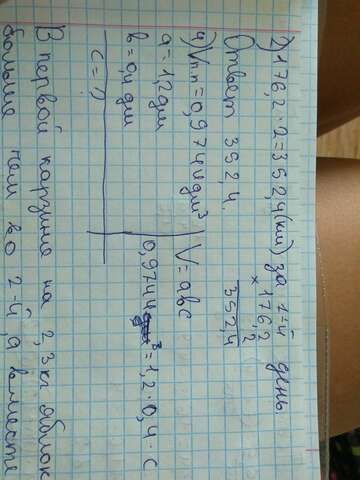 2) 176,2 · 2 = 352,4 (км) за 1-й день
× 176,2
2
352,4
Ответ 352,4.
4) Vпп = 0,9744 дм³
a = 1,2 дм
b = 0,4 дм
c = ?
V = abc
0,9744 ³ = 1,2 · 0,4 · c
В первой карзине на 2,3 кг яблок
больше чем во 2-й, а вместе